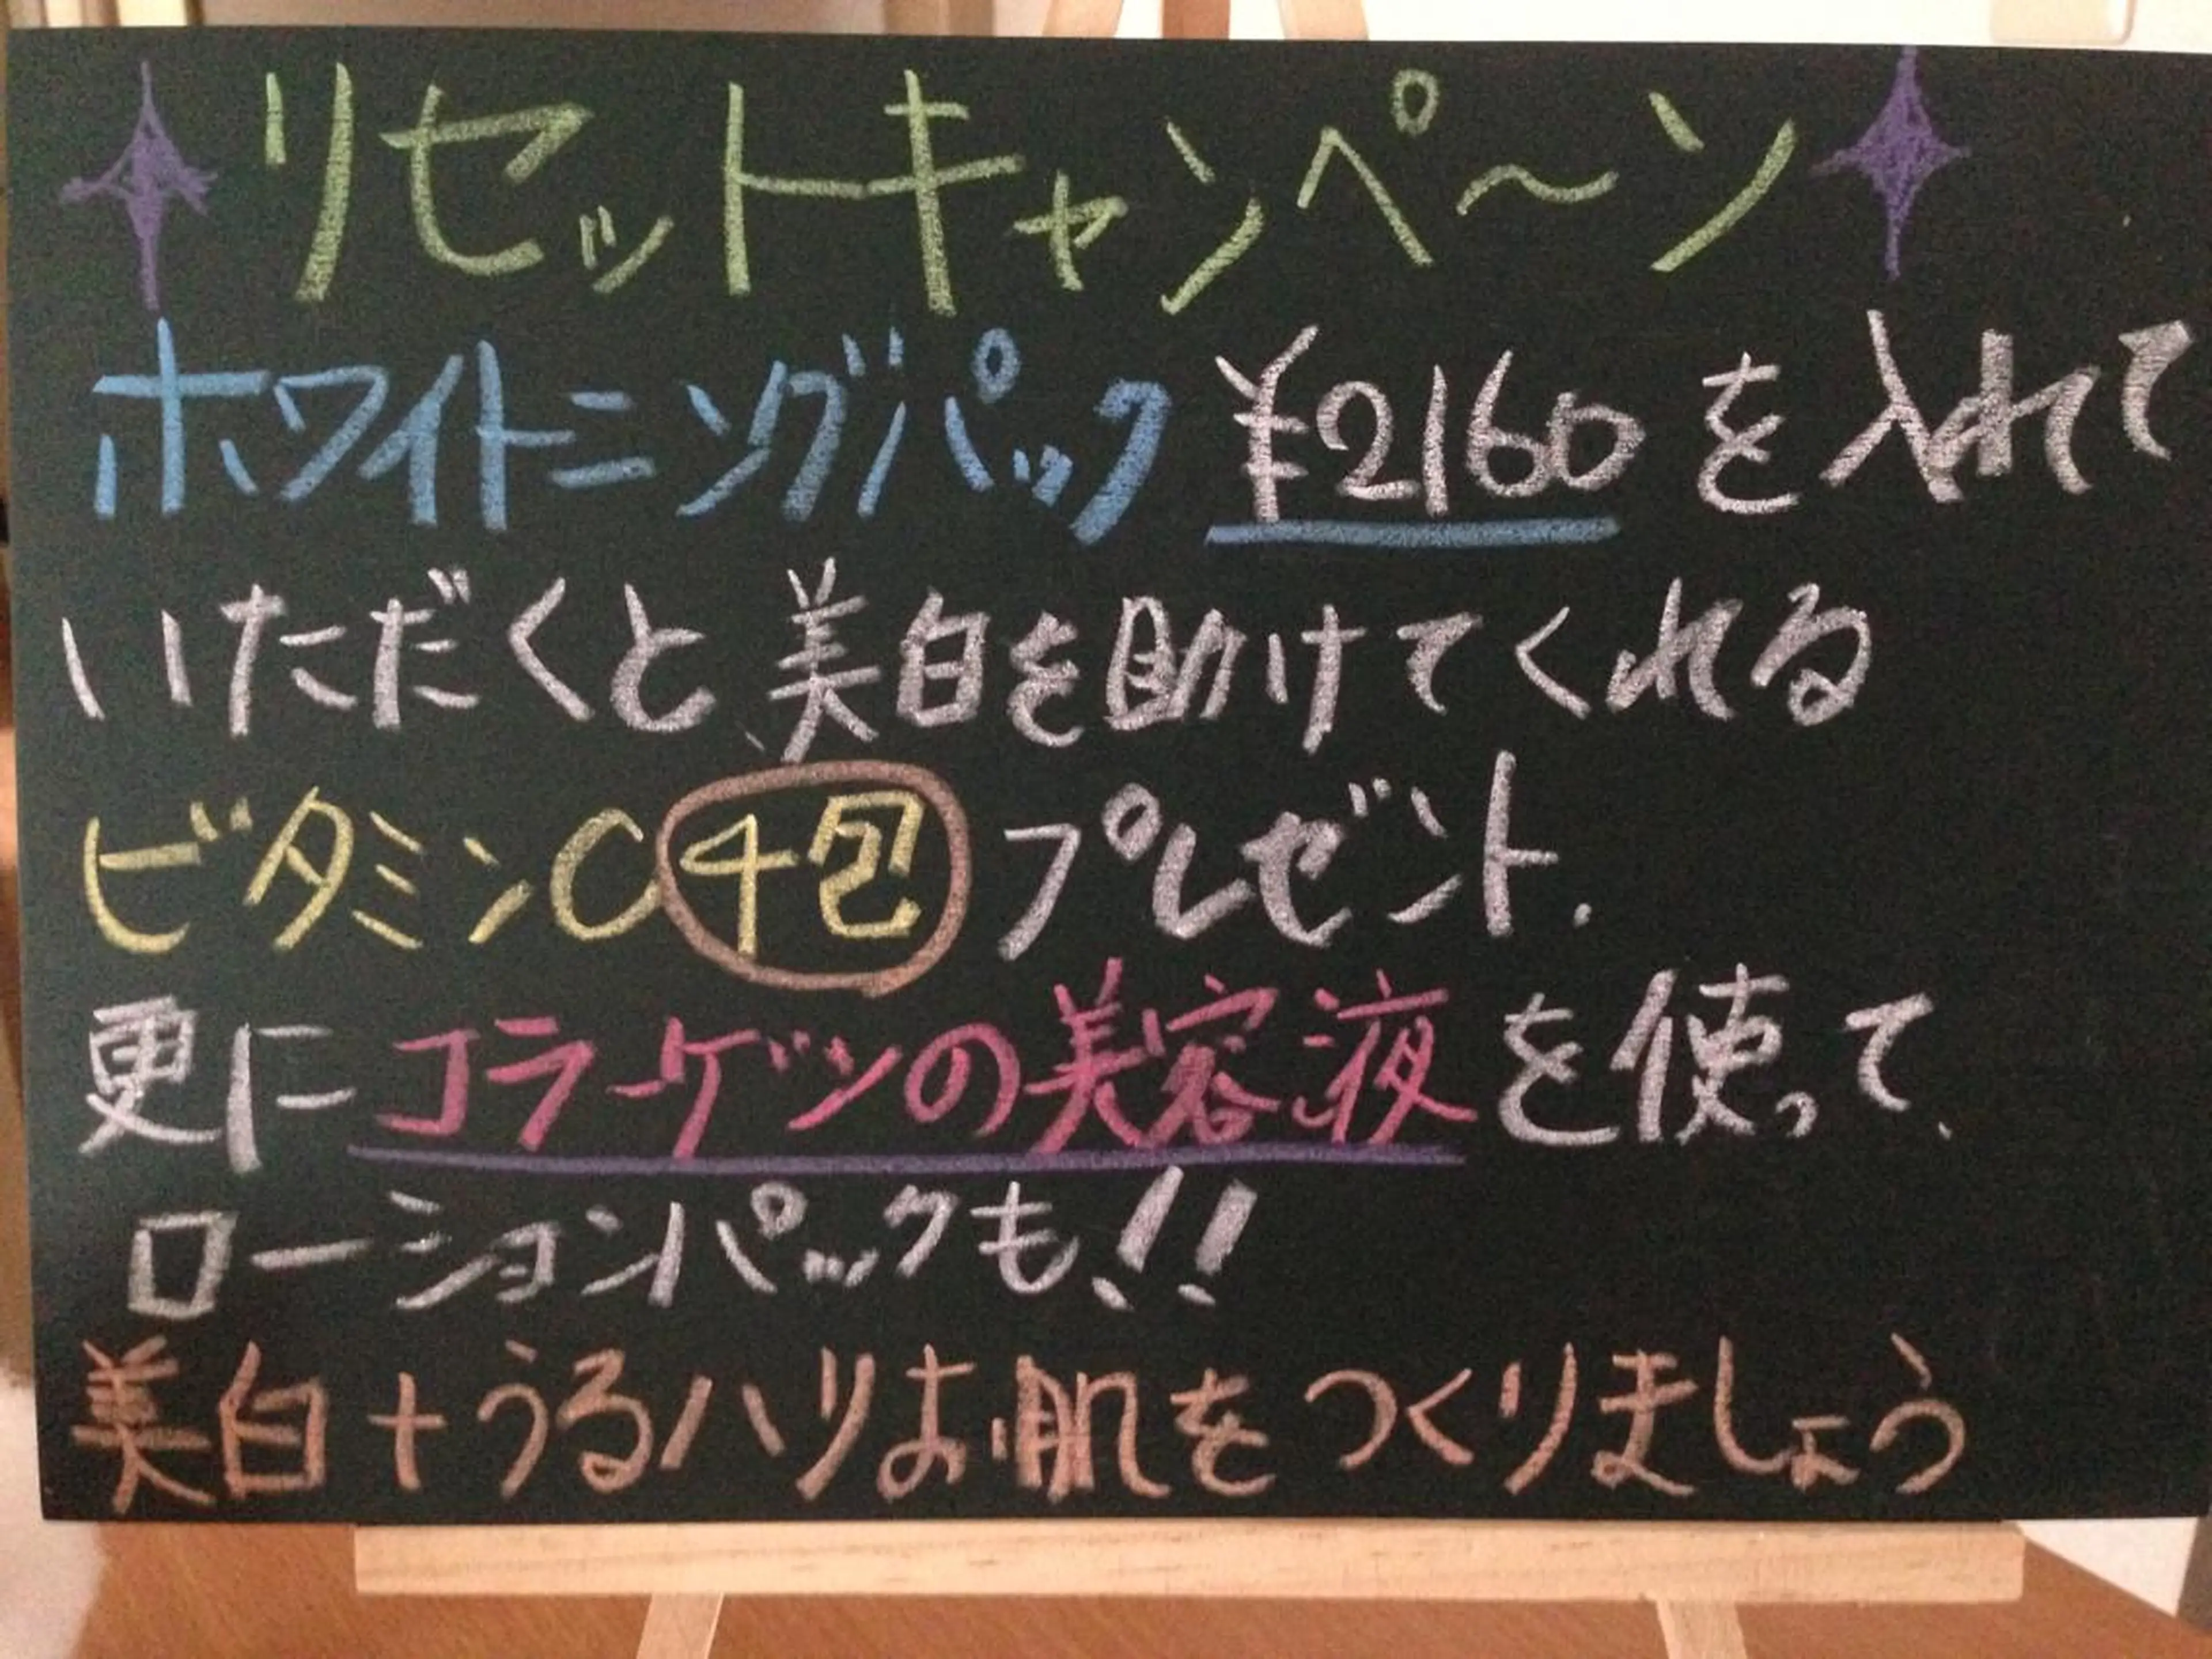 リセットキャンペ〜ン
ホワイトニングパック ¥2160 を入れて
いただくと美白を助けてくれる
ビタミンC4包 プレゼント.
更にコラーゲンの美容液を使って、
ローションパックも!!
美白+うるハリお肌をつくりましょう